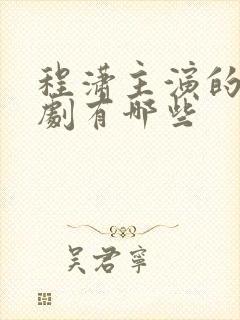 程潇主演的
剧有哪些
吴君宁